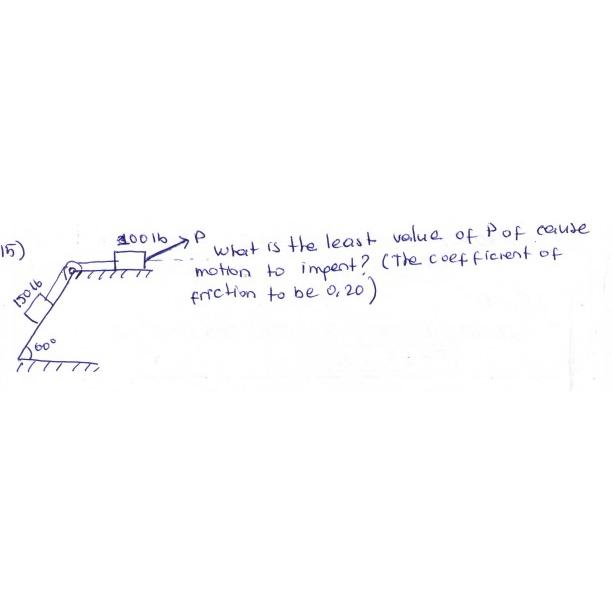 15)
100 lb
P
what is the least value of P of cause
motion to impent? (The coefficient of
friction to be 0,20)
150 lb
60°